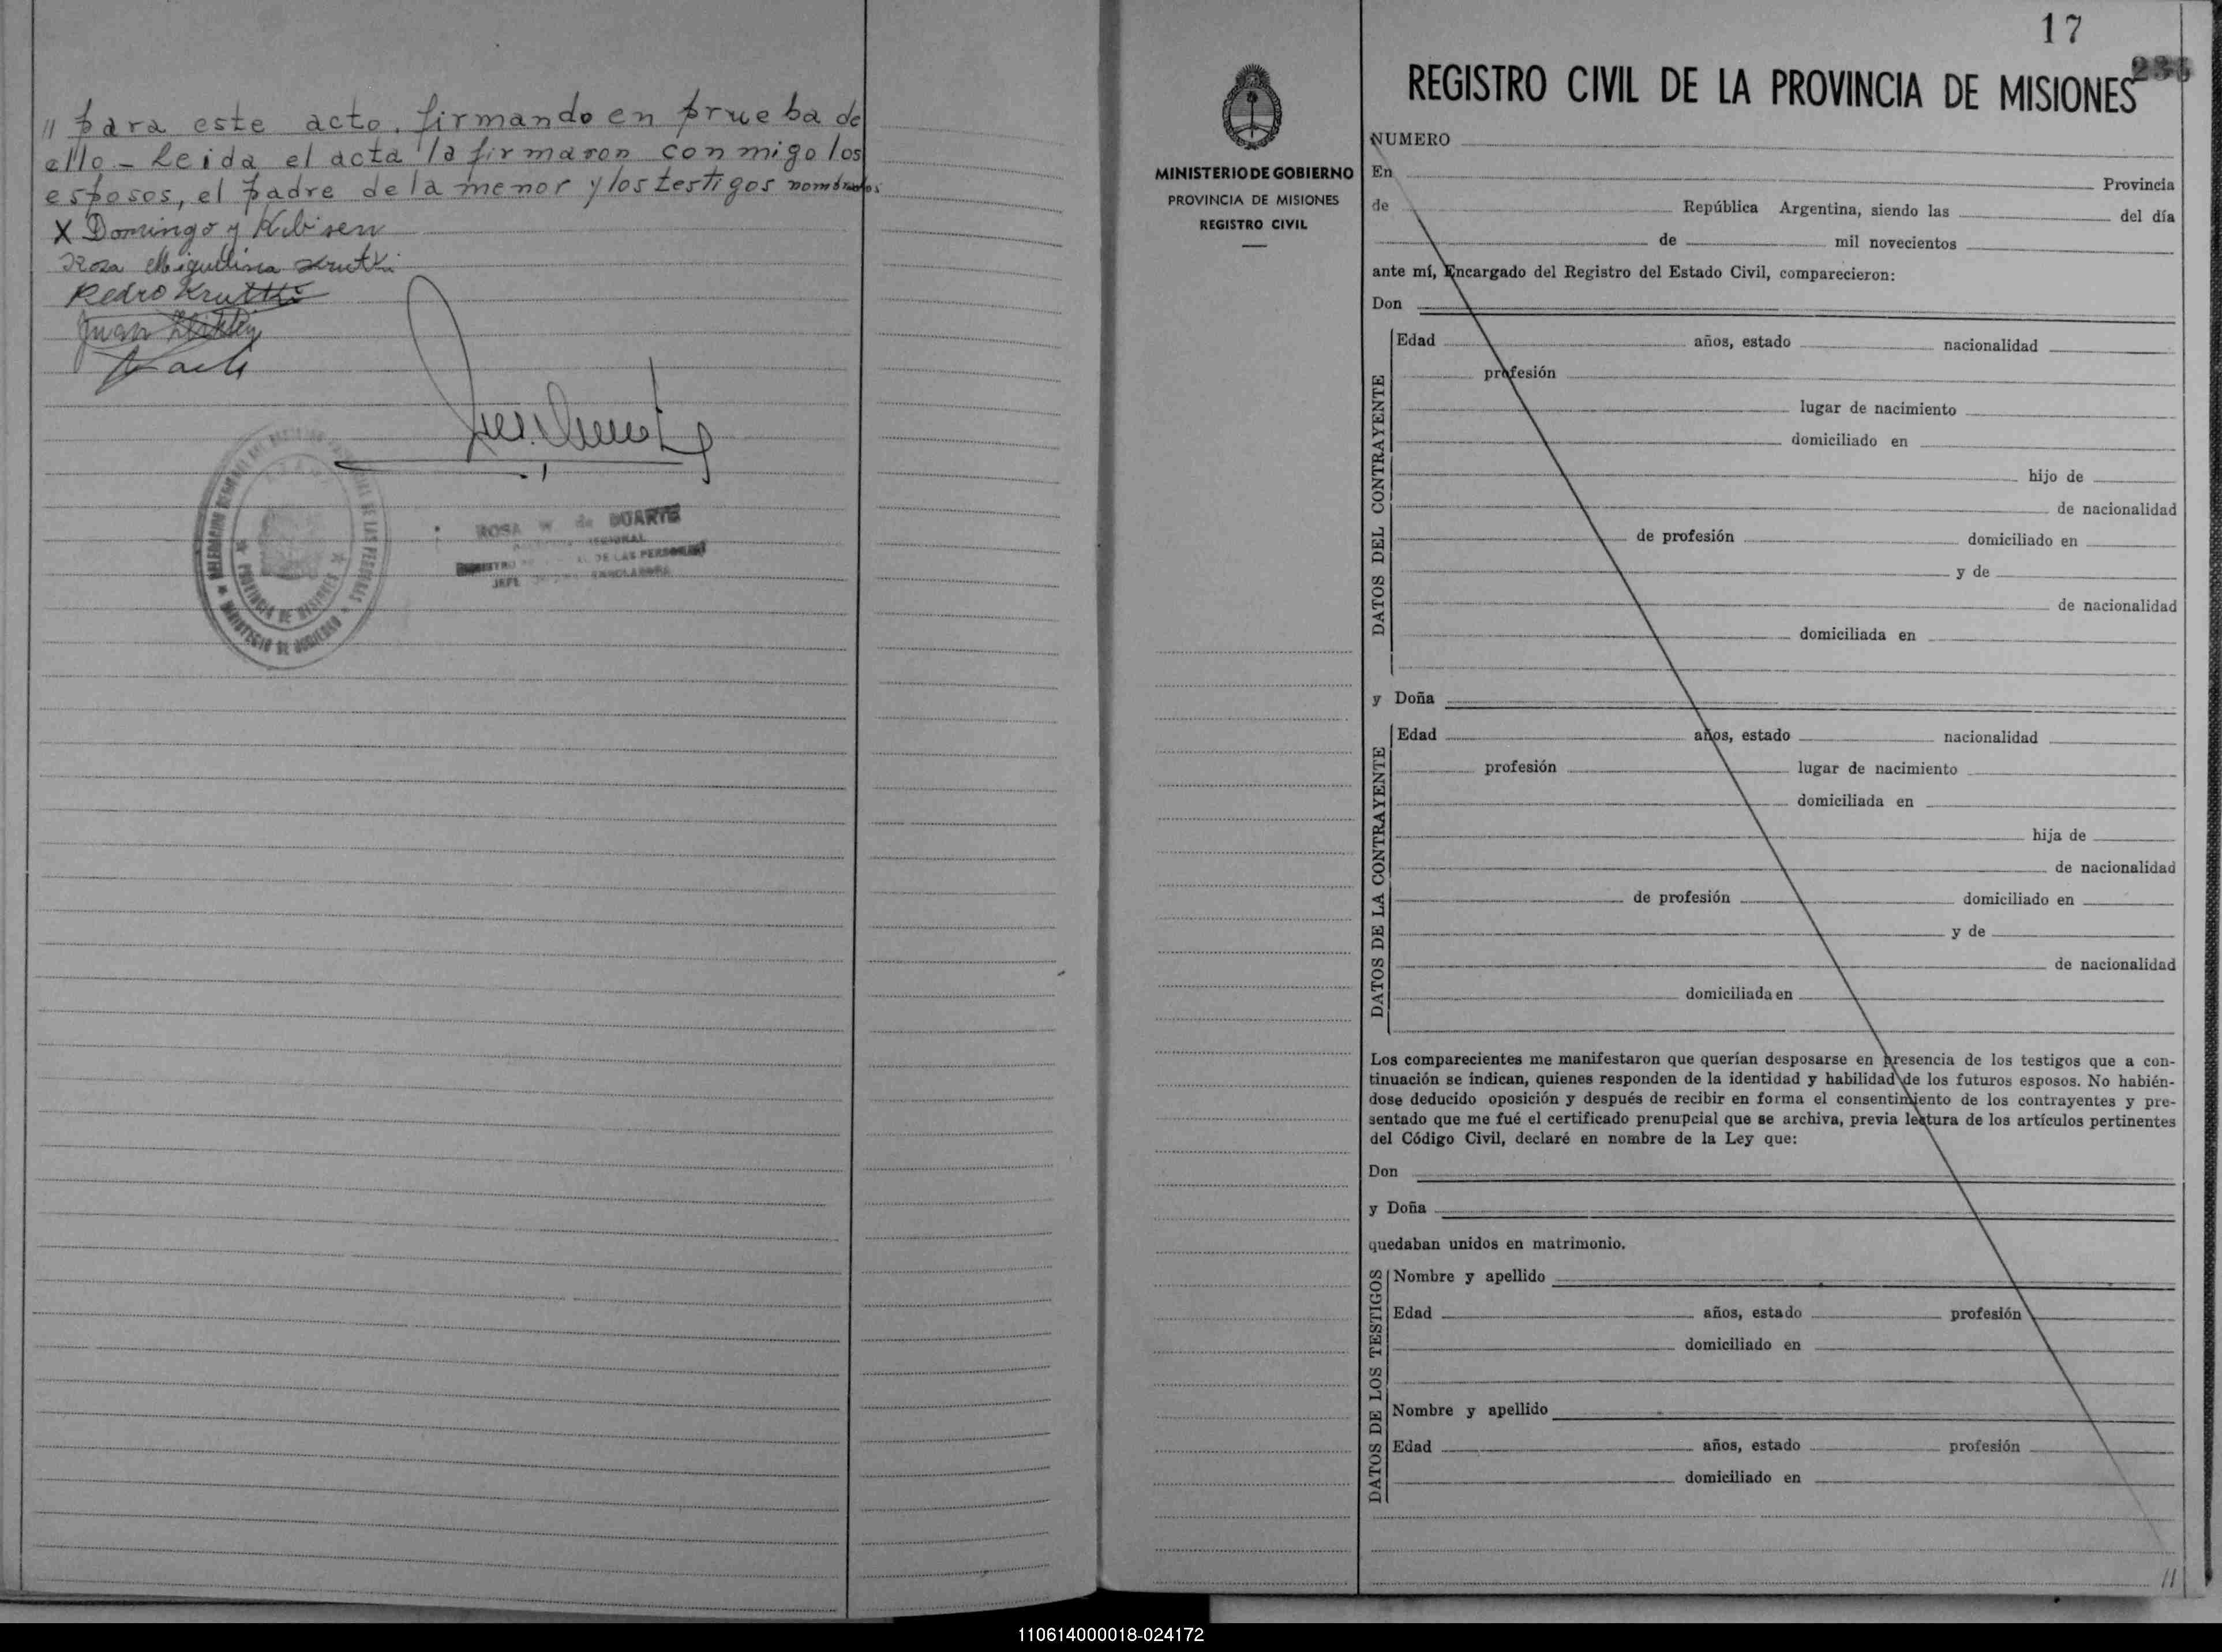 // para este acto, firmando en prueba de
ello - Leida el acta la firmaron conmigo los
esposos, el padre de la menor y los testigos nombrados
X Domingo y
Rosa Miguelina
Pedro
Juan
ROSA W. de DUARTE
DE LAS PERSONAS
JEFE
PROVINCIA DE MISIONES
MINISTERIO DE GOBIERNO
17
MINISTERIO DE GOBIERNO
PROVINCIA DE MISIONES
REGISTRO CIVIL
REGISTRO CIVIL DE LA PROVINCIA DE MISIONES
NUMERO
En Provincia
de República Argentina, siendo las del día
de mil novecientos
ante mí, Encargado del Registro del Estado Civil, comparecieron:
Don
DATOS DEL CONTRAYENTE
Edad años, estado nacionalidad
profesión
lugar de nacimiento
domiciliado en
hijo de
de nacionalidad
de profesión domiciliado en
y de
de nacionalidad
domiciliada en
y Doña
DATOS DE LA CONTRAYENTE
Edad años, estado nacionalidad
profesión lugar de nacimiento
domiciliada en
hija de
de nacionalidad
de profesión domiciliado en
y de
de nacionalidad
domiciliada en
Los comparecientes me manifestaron que querían desposarse en presencia de los testigos que a con-
tinuación se indican, quienes responden de la identidad y habilidad de los futuros esposos. No habién-
dose deducido oposición y después de recibir en forma el consentimiento de los contrayentes y pre-
sentado que me fué el certificado prenupcial que se archiva, previa lectura de los artículos pertinentes
del Código Civil, declaré en nombre de la Ley que:
Don
y Doña
quedaban unidos en matrimonio.
DATOS DE LOS TESTIGOS
Nombre y apellido
Edad años, estado profesión
domiciliado en
Nombre y apellido
Edad años, estado profesión
domiciliado en
//
110614000018-024172